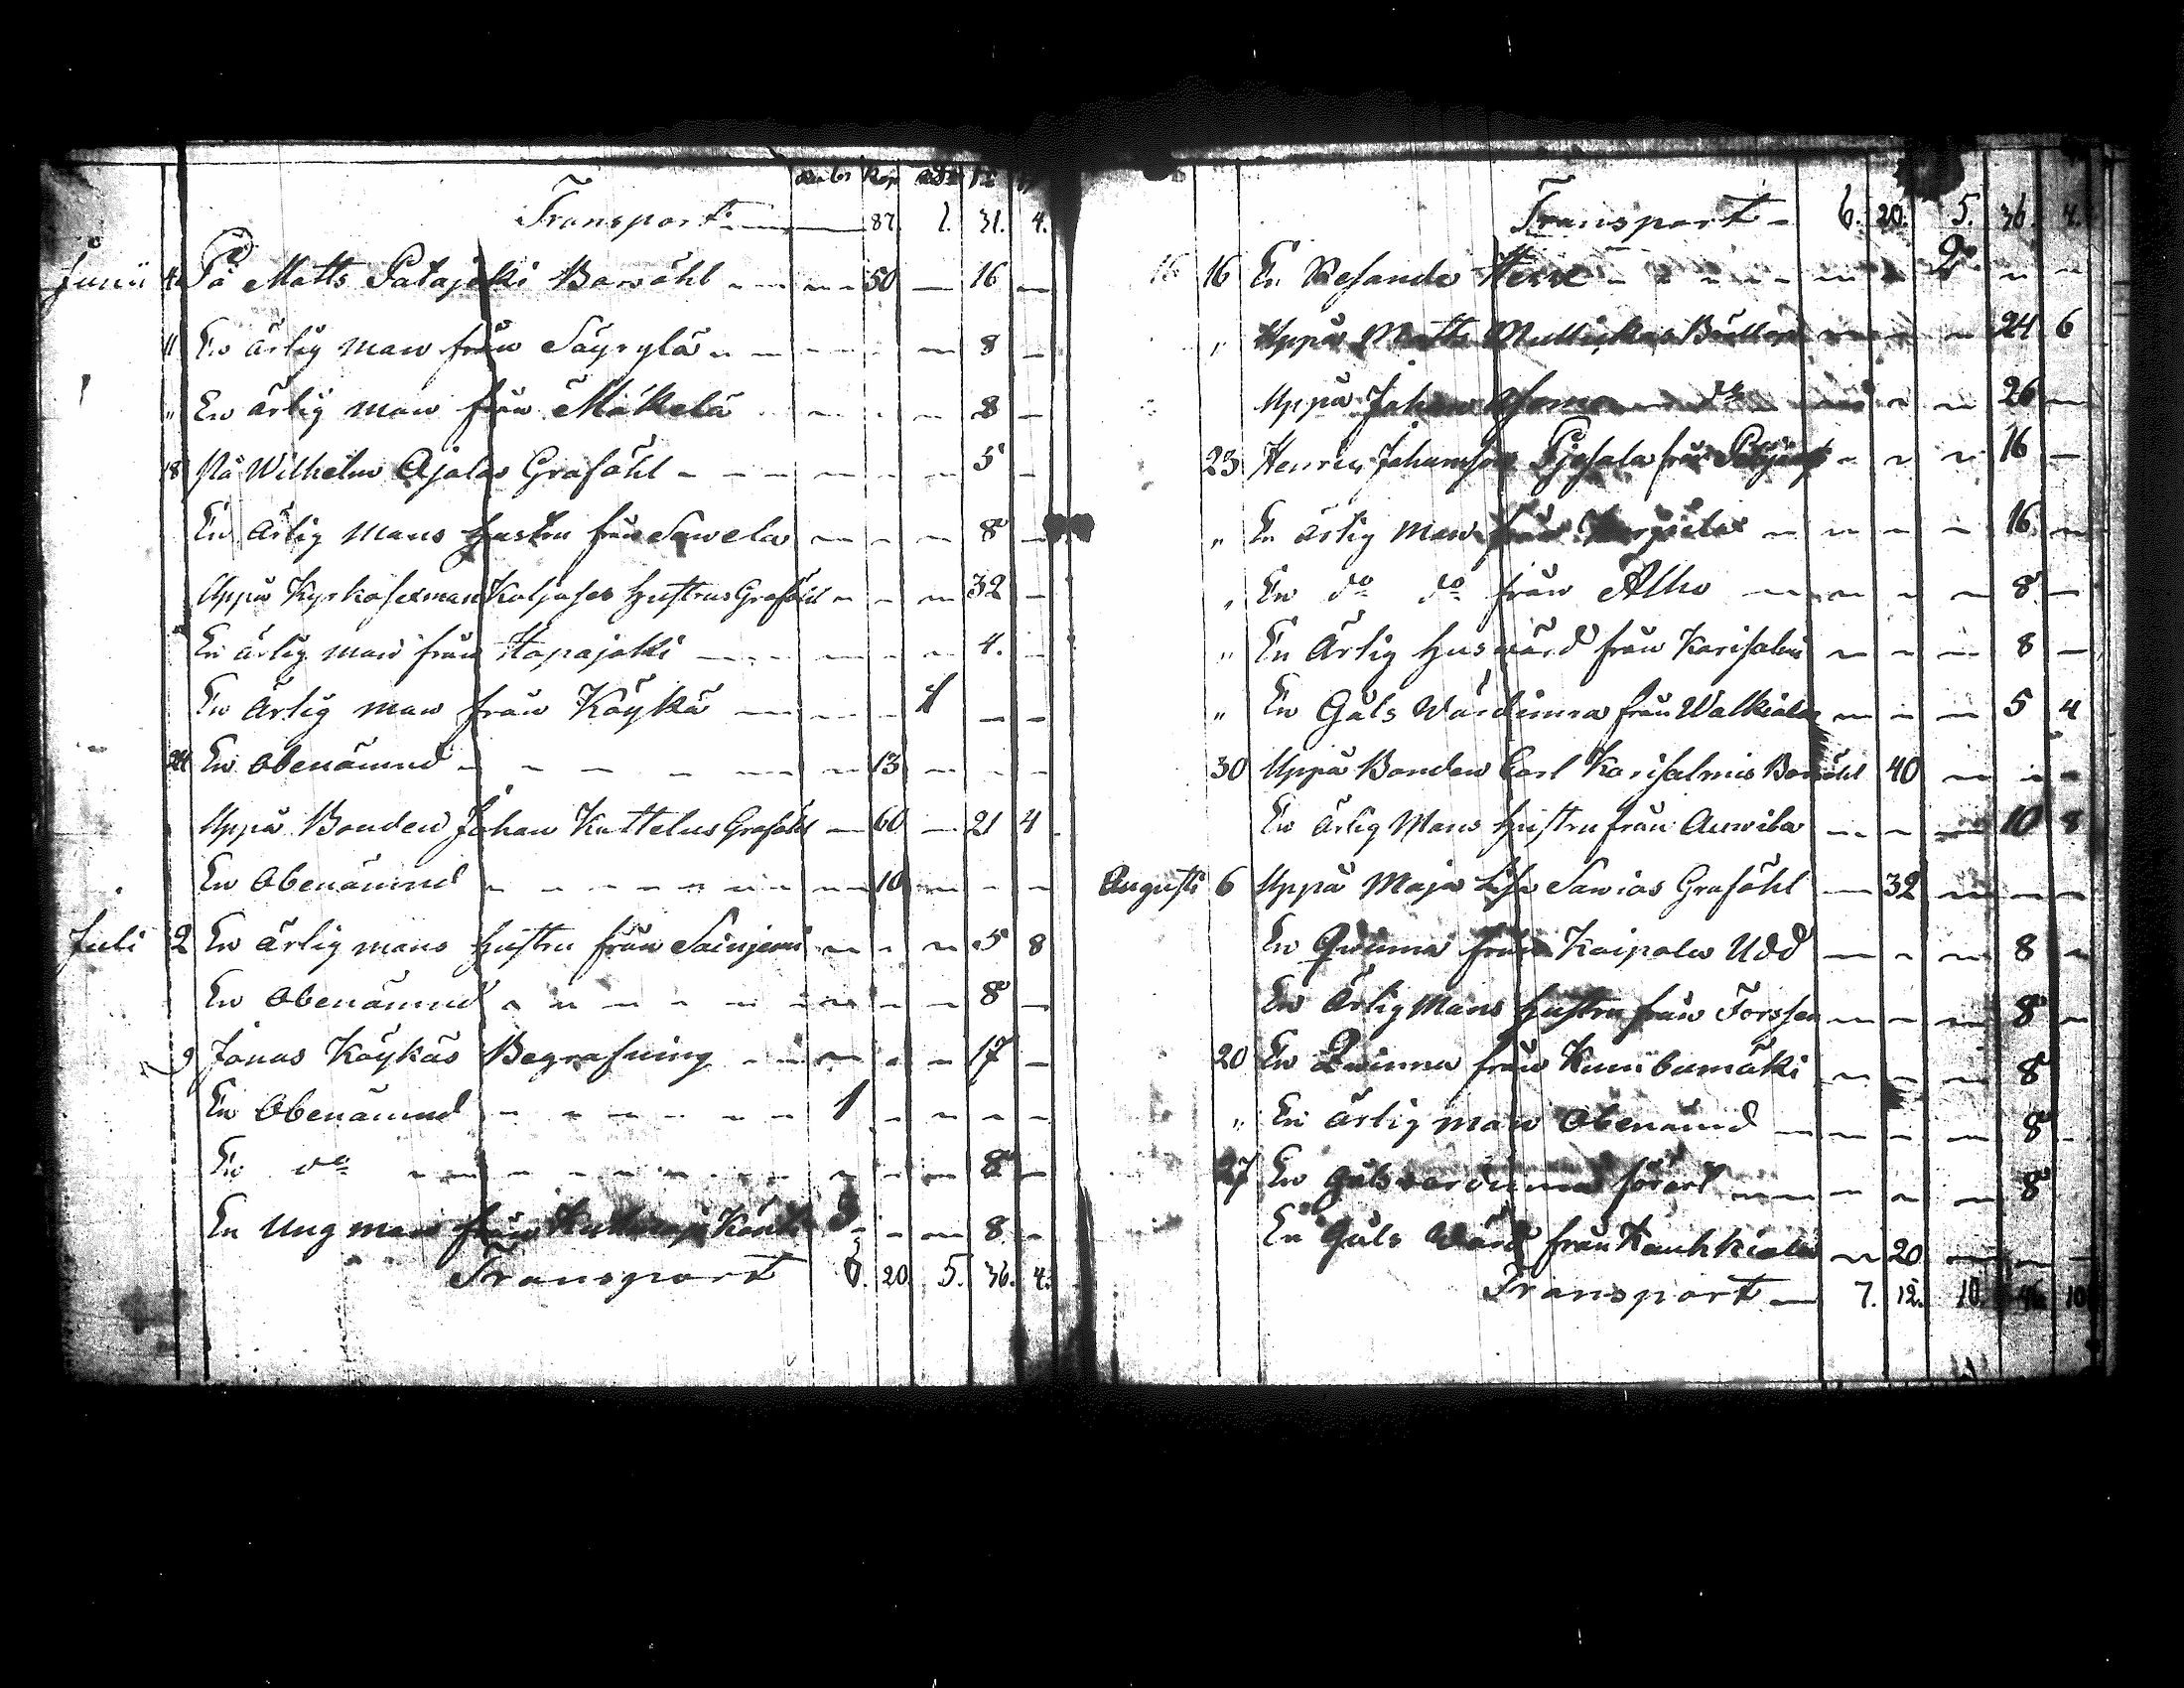 Rubl Kop Rdr
Transport 87. 1. 31. 4.
Junii 4 På Matts Patajoki Barsöhl 50 16
11 En ärlig man från Säyrylä 8
" En ärlig man från Mäkelä 8
18 På Wilhelm Ajalas Graföhl 5
En ärlig Mans hustru från Sawela 8
Uppå Kyrkosexman Katjases hustrus Graföhl 32
En ärlig man från Hapajoki 4.
En ärlig man från Käykä 1
24 En Obenämnd 13
Uppå Bonden Johan Kattelus Graföhl 60 21 4
En Obenämnd 10
Juli 2 En ärlig mans hustru från Sainjemi 5 8
En Obenämnd 8
9 Jonas Käykäs Begrafning 17
En Obenämnd 1
En do 8
En Ung man från 3 8
Transport 6. 20 5. 36. 4.
Transport 6. 20. 5. 36. 4.
16 16 En Resande Herre 2
" Uppå Matts Mullikas Bröllop 24 6
Uppå Johan do 26
23 Henric Johansson från 16
" En ärlig Man från 16
" En do do från Alho 8
" En Ärlig huswärd från Karisalmi 8
" En Gäls Wärdinna från Walkiala 5 4
30 Uppå Bonden Carl Karisalmis Barsöhl 40
En ärlig Mans hustru från Anwila 10 8
Augusti 6 Uppå Maja Lisa Sawias Graföhl 32
En Qvinna från Kaipola Udd 8
En Ärlig Mans hustru från Forssan 8
20 En Qwinna från 8
" En ärlig man Obenämd 8
27 En gäls wärdinna 8
En Gäls Wärd från Kauhkiala 20
Transport 7. 12. 10. 46 10